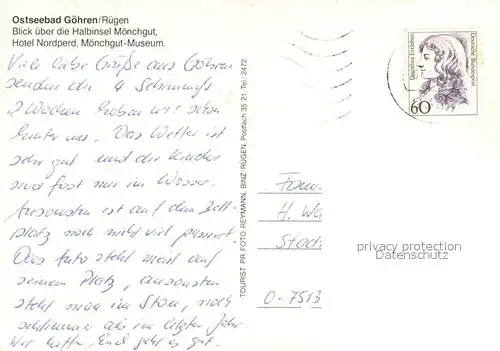 Ostseebad Göhren/Rügen
Blick über die Halbinsel Mönchgut,
Hotel Nordperd, Mönchgut-Museum.
Viele liebe Grüße aus Göhren
senden die 4
2 Wochen haben wir schon
hinter uns. Das Wetter ist
sehr gut und die Kinder
sind fast nur im Wasser.
Ansonsten ist auf dem Zelt-
platz noch nicht viel passiert.
Das Auto steht meist auf
seinem Platz, ansonsten
steht man im Stau, noch
schlimmer als im letzten Jahr.
Wir hoffen, Euch geht es gut.
TOURIST PR FOTO REYMANN, BINZ RÜGEN, Postfach 35 21, Tel: 2472
Dorothea Erxleben
Deutsche Bundespost
60
Fam.
H.
O-7513
privacy protection
Oldthing.de